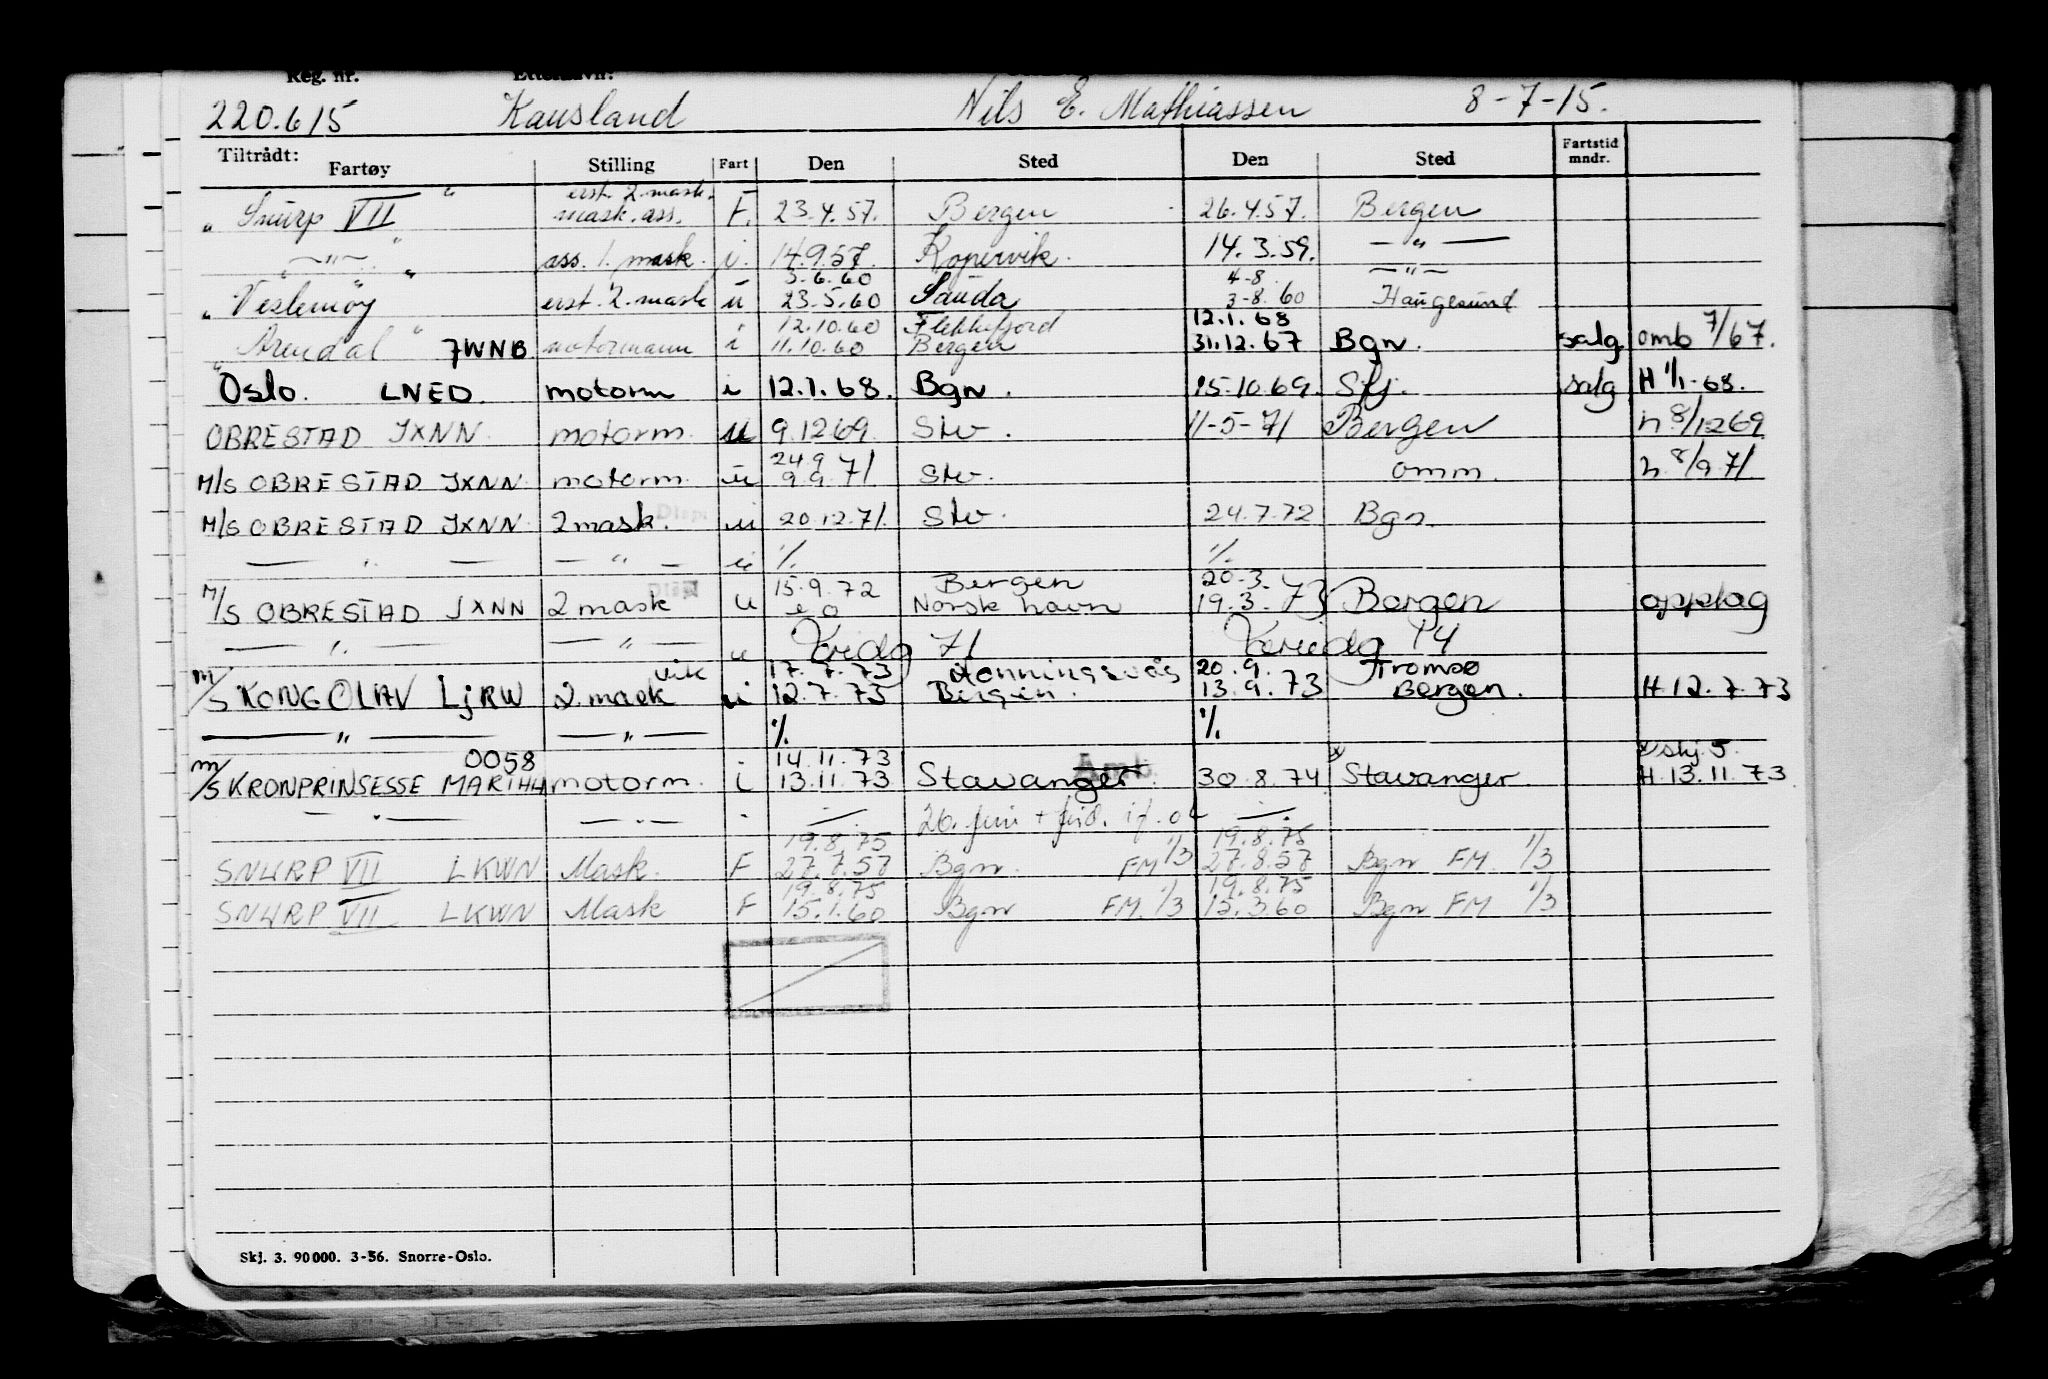 Reg. nr. Etternavn:
220.615 Kausland Nils E. Mathiassen 8-7-15.
Tiltrådt: Fartøy Stilling Fart Den Sted Den Sted Fartstid mndr.
erst. 2. mask.
„ Snurp VII " mask. ass. F. 23.4.57. Bergen 26.4.57. Bergen
— " — ass. 1. mask. i. 14.9.57. Kopervik. 14.3.59. — " —
3.6.60 4-8 — " —
„ Veslemøy " erst. 2. mask u 23.5.60 Sauda 3-8.60 Haugesund
12.10.60 Flekkefjord 12.1.68
„ Arendal " JWNB motormann i 11.10.60 Bergen 31.12.67 Bgn. salg omb 7/67.
Oslo. LNED. motorm i 12.1.68. Bgn. 15.10.69. Skj. salg H 1/1-68.
OBRESTAD JXNN. motorm. u 9.1269. Stv. 11-5-71 Bergen h.8/1269
24.9
M/S OBRESTAD JXNN motorm. u 9.9.71 Stv. omm. h.8/9.71.
M/S OBRESTAD JXNN 2 mask. Disp u 20.12.71. Stv. 24.7.72 Bgn.
— " — — " — u ٪. ٪.
15.9.72 Bergen 20.3.
M/S OBRESTAD JXNN 2 mask Disp u e o Norsk havn 19.3.73 Bergen opplag
— " — — " — u 71 14
vik 17.7.73 Honningsvåg 20.9. Tromsø
m/S KONG OLAV LJRW 2. mask u 12.7.73 Bergen. 13.9.73 Bergen. H 12.7.73
— " — — " — ٪. ٪.
0058 14.11.73 x x skj. 5.
m/S KRONPRINSESSE MÄRTHA motorm. i 13.11.73 Stavanger. Amb. 30.8.74 Stavanger. H.13.11.73
— " — — " — —.— 26. juni + —.—
19.8.75 19.8.75
SNURP VII LKWN Mask. F 27.7.57 Bgn. FM 1/3 27.8.57 Bgn FM. 1/3
19.8.75 19.8.75
SNURP VII LKWN Mask F 15.1.60 Bgn FM. 1/3 12.3.60 Bgn FM 1/3
Skj. 3. 90 000. 3-56. Snorre-Oslo.